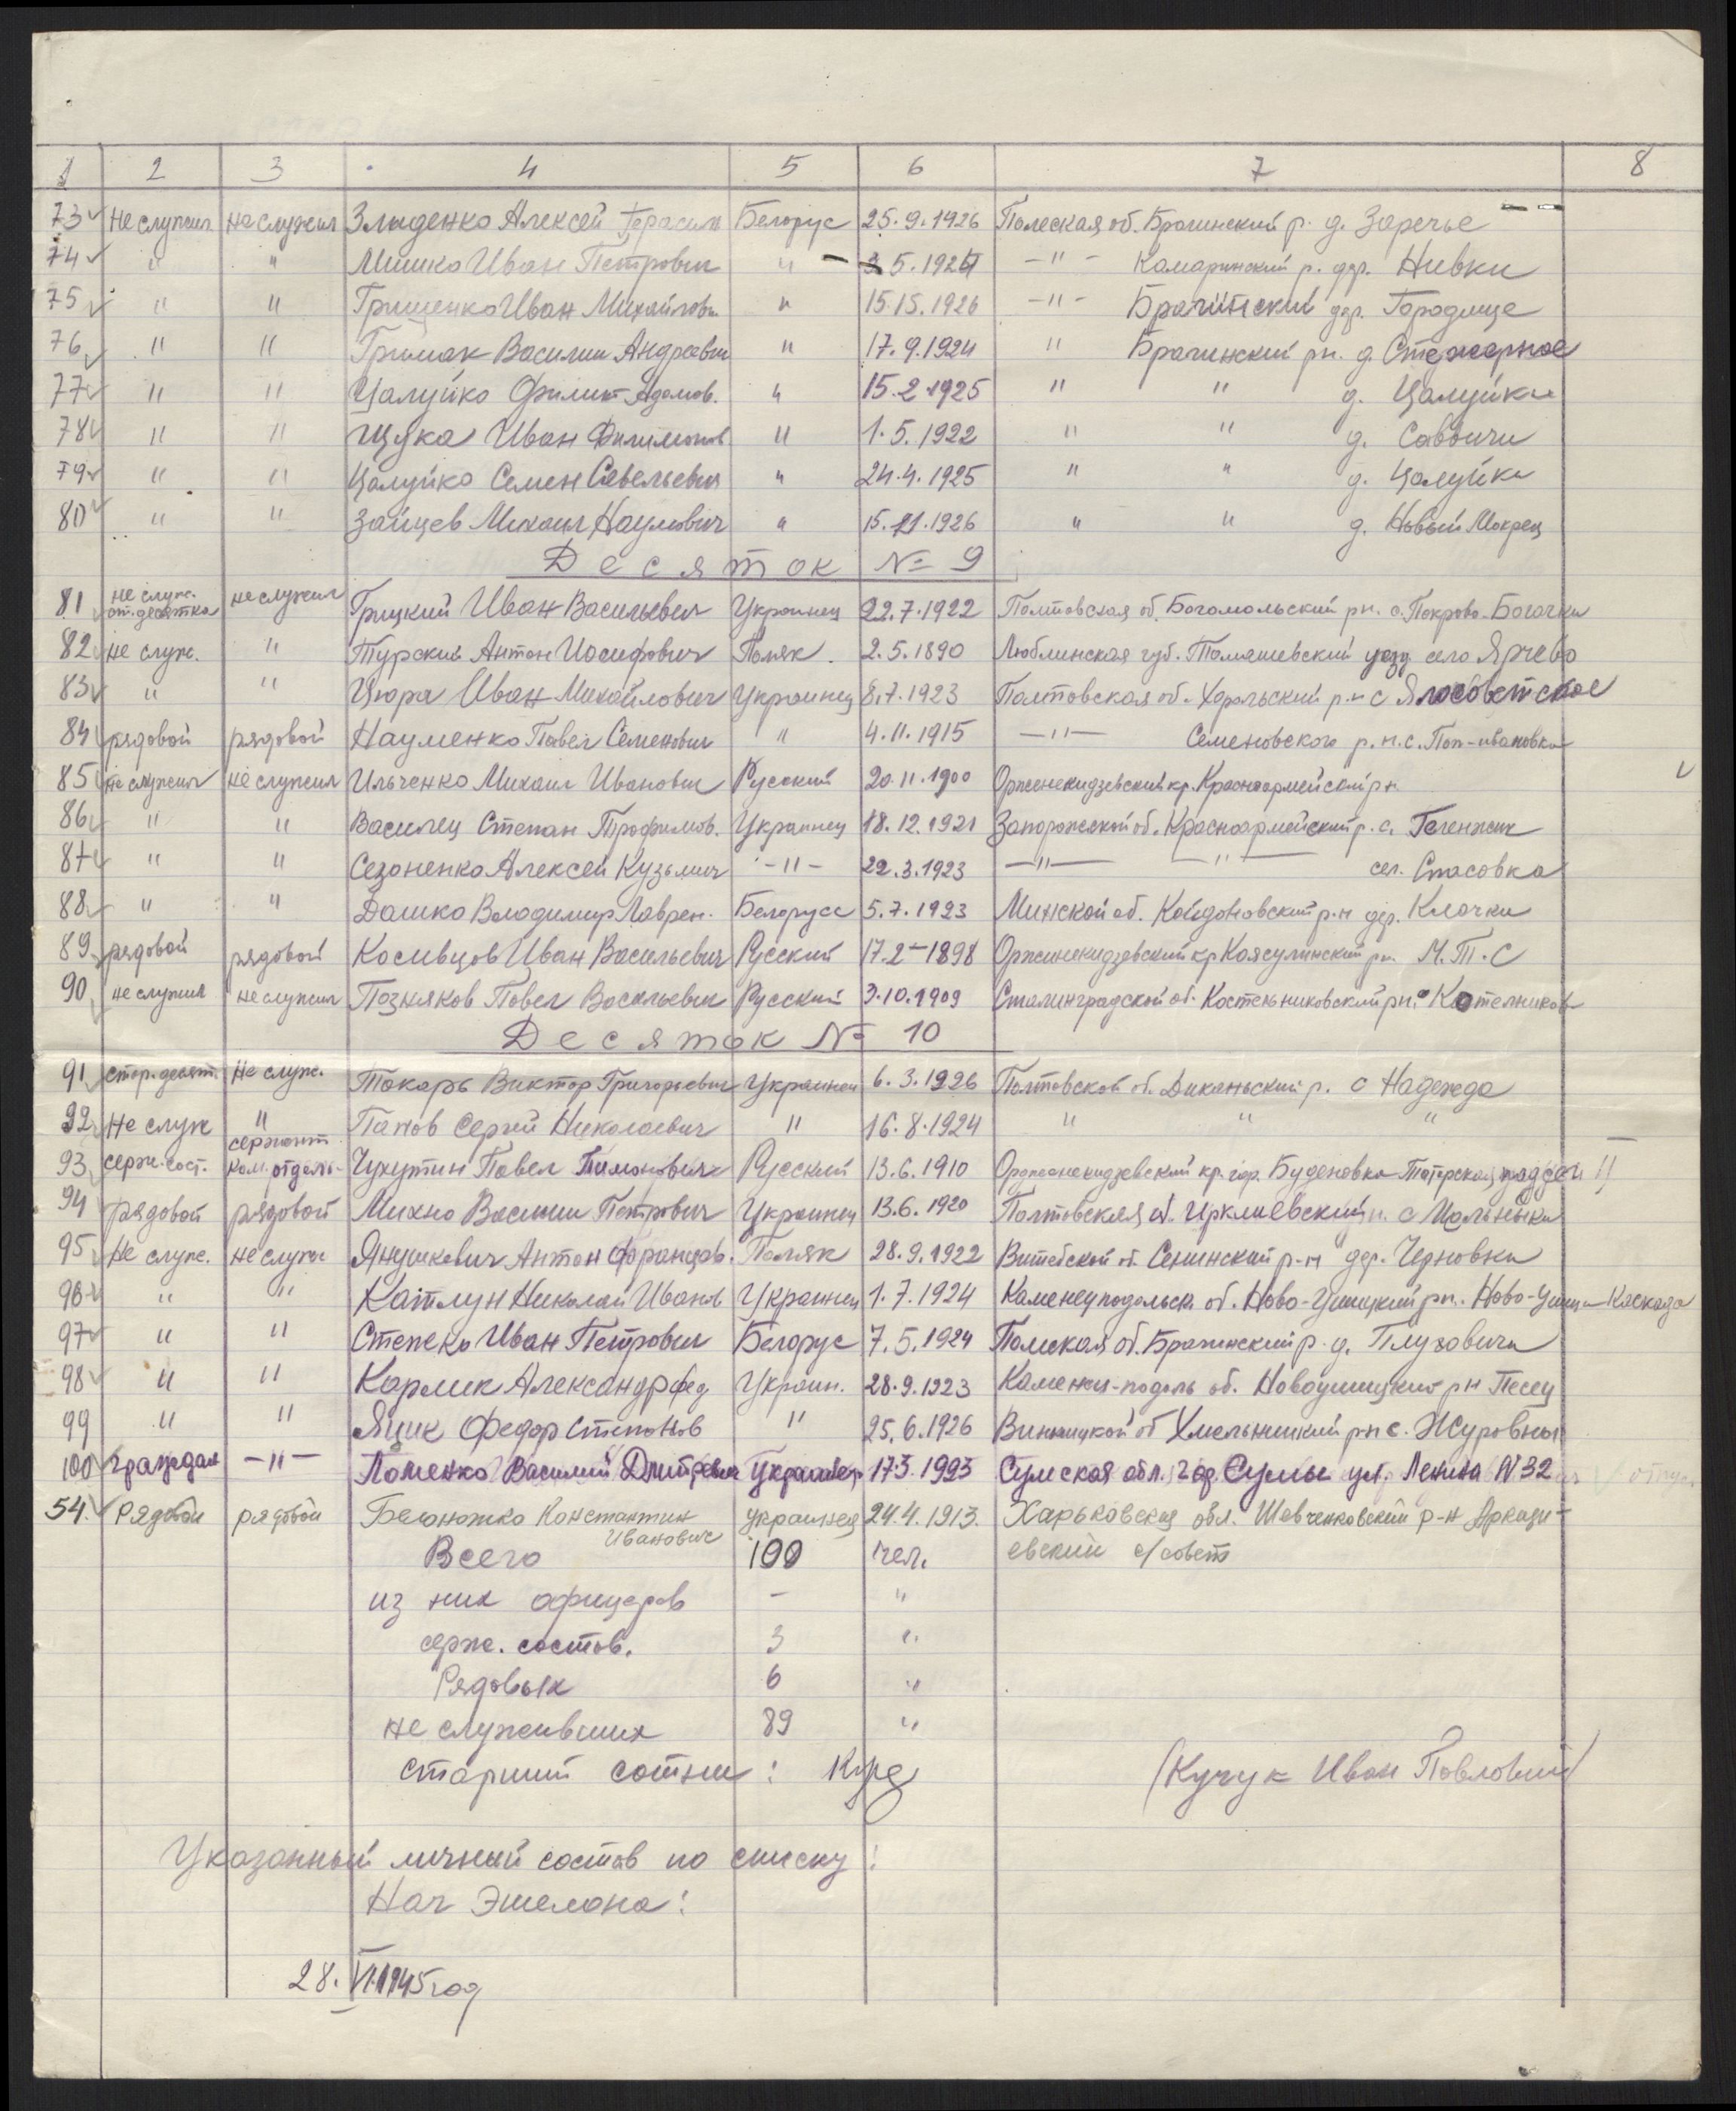 1 2 3 4 5 6 7 8
73 Не служил не служил Злыденко Алексей Герасим Белорус 25.9.1926 Полеская об. Брагинский р. д. Заречье
74 " " Мишко Иван Петрович " 5.1924 -"- Камаринский р. дер. Нивки
75 " " Грищенко Иван Михайлови " 15.15.1926 -"- Брагинский дер. Городище
76 " " Гримак Василии Андреевич " 17.9.1924 " Брагинский рн. д. Стежерное
77 " " Цалуйко Филипп Адамов. " 15.2 1925 " " д. Цалуйки
78 " " Щука Иван Филимонов " 1.5.1922 " " д. Саввичи
79 " " Цалуйко Семен Савельевич " 24.4.1925 " " д. Цалуйки
80 " " Зайцев Михаил Наумович " 15.11.1926 " " д. Новый Мокрец
Десяток № 9
81 не служ. ст. десятка не служил Грицкий Иван Васильевич Украинец 22.7.1922 Полтовская об. Богомольский рн. с. Покрово-Богачки
82 не служ. " Турский Антон Иосифович Поляк. 2.5.1890 Люблинская губ. Томашевский уезд село Ярчево
83 " " Цюра Иван Михайлович Украинец 8.7.1923 Полтовская об. Хорольский р-н с
84 рядовой рядовой Науменко Павел Семенович " 4.11.1915 -"- Семеновского р.н. с. Поп-ивановка
85 не служил не служил Ильченко Михаил Иванович Русский 20.11.1900 Орженекидзевский кр. Красноармейский рн.
86 " " Василец Степан Трофимов. Украинец 18.12.1921 Запорожской об. Красноармейский р. с.
87 " " Сезоненко Алексей Кузьмич -"- 22.3.1923 -"- -"- сел. Спасовка
88 " " Дашко Владимир Лаврен. Белорусс 5.7.1923 Минской об. Койдоновский р-н дер. Клочки
89 рядовой рядовой Косивцов Иван Васильевич Русский 17.2-1898 Оржинекидзевский кр Каясулинский рн. М.Т.С
90 не служил не служил Позняков Павел Васильевич Русский 3.10.1909 Сталинградской об. Костельниковский рн. с Котелников
Десяток № 10
91 стар. десят. Не служ. Токарь Виктор Григорьевич Украинец 6.3.1926 Полтовской об. Диканьский р. с Надежда
92 Не служ " Панов Сергей Николаевич " 16.8.1924 " " "
93 серж. сост. сержант ком. отдель. Чухутин Павел Тимонович Русский 13.6.1910 Орджонекидзевский кр. гор. Буденовка Татарская
94 рядовой рядовой Михно Василии Петрович Украинец 13.6.1920 Полтовская об. Ирклиевский н. с Мельники
95 Не служ. не служи Янушкевич Антон Францов. Поляк 28.9.1922 Витебской об. Сенинский р-н дер. Черновки
96 " " Катлун Николай Иванов Украинец 1.7.1924 Каменецподольск об. Ново-Ушицкий рн. Ново-Ушица Каскада
97 " " Степеко Иван Петрович Белорус 7.5.1924 Полеская об. Брагинский р. д. Глуховичи
98 " " Кормик Александр Фед Украин. 28.9.1923 Каменец-подоль об. Новоушицкий рн Песец
99 " " Яцик Федор Степонов " 25.6.1926 Винницкой об Хмельницкий рн с. Журовны
100 граждан -"- Ломенко Василий Дмитревич Украинец 17.3.1993 Сумская обл. гор. Сумы ул. Ленина N 32
54. Рядовой рядовой Белоножко Константин Иванович украинец 24.4.1913. Харьковская обл. Шевченковский р-н Аркади-
Всего 100 чел. евский с/совет
из них офицеров - "
серж. состов. 3 "
Рядовых 6 "
не служивших 89 "
старший сотни: (Кучук Иван Повлович)
Указанный личный состав по списку:
Нач Эшелона:
28.VI.1945 год